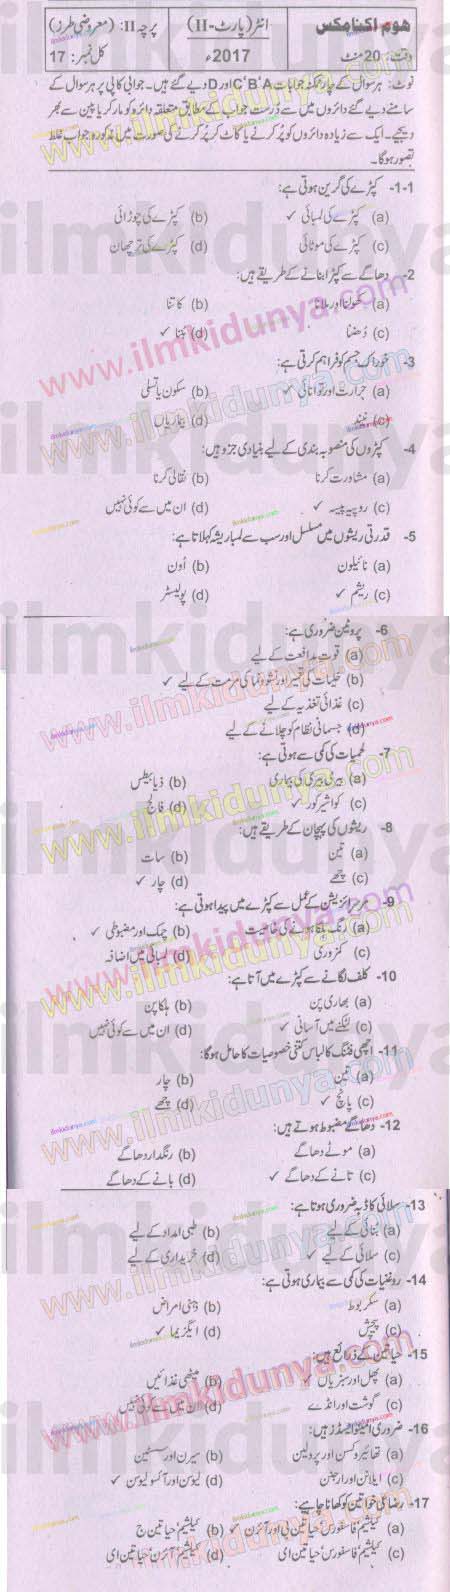 ہوم اکنامکس
انٹر (پارٹ-II)
پرچہ II: (معروضی طرز)
وقت: 20 منٹ
2017ء
کل نمبر: 17
نوٹ: ہر سوال کے چار ممکنہ جوابات C'B'A اور D دیے گئے ہیں۔ جوابی کاپی پر ہر سوال کے
سامنے دیے گئے دائروں میں سے درست جواب کے مطابق متعلقہ دائرہ کو مارکر یا پین سے بھر
دیجیے۔ ایک سے زیادہ دائروں کو پُر کرنے یا کاٹ کر پُر کرنے کی صورت میں مذکورہ جواب غلط
تصور ہوگا۔
1-1- کپڑے کی گرین ہوتی ہے:
(a) کپڑے کی لمبائی ✓ (b) کپڑے کی چوڑائی
(c) کپڑے کی موٹائی (d) کپڑے کی ترچھان
2- دھاگے سے کپڑا بنانے کے طریقے ہیں:
(a) کھولنا اور ملانا (b) کاتنا
(c) دُھننا (d) بُننا ✓
3- خوراک جسم کو فراہم کرتی ہے:
(a) حرارت اور توانائی ✓ (b) سکون یا تسلی
(c) نیند (d) بیماریاں
4- کپڑوں کی منصوبہ بندی کے لیے بنیادی جزو ہیں:
(a) مشاورت کرنا (b) نقالی کرنا
(c) روپیہ پیسہ ✓ (d) ان میں سے کوئی نہیں
5- قدرتی ریشوں میں مسلسل اور سب سے لمبا ریشہ کہلاتا ہے:
(a) نائیلون (b) اُون
(c) ریشم ✓ (d) پولیسٹر
6- پروٹین ضروری ہے:
(a) قوت مدافعت کے لیے
(b) خلیات کی تعمیر اور نشوونما کی مرمت کے لیے ✓
(c) غذائی تغذیہ کے لیے
(d) جسمانی نظام کو چلانے کے لیے
7- لحمیات کی کمی سے ہوتی ہے:
(a) بیری بیری کی بیماری (b) ذیابیطس
(c) کواشیرکور ✓ (d) فالج
8- ریشوں کی پہچان کے طریقے ہیں:
(a) تین (b) سات
(c) چھے (d) چار ✓
9- مرسرائزیشن کے عمل سے کپڑے میں پیدا ہوتی ہے:
(a) رنگ ہلکا ہونے کی خاصیت (b) چمک اور مضبوطی ✓
(c) کمزوری (d) لمبائی میں اضافہ
10- کلف لگانے سے کپڑے میں آتا ہے:
(a) بھاری پن (b) ہلکا پن
(c) لٹکنے میں آسانی ✓ (d) ان میں سے کوئی نہیں
11- اچھی فٹنگ کا لباس کتنی خصوصیات کا حامل ہوگا:
(a) تین (b) چار
(c) پانچ ✓ (d) چھے
12- دھاگے مضبوط ہوتے ہیں:
(a) موٹے دھاگے (b) رنگدار دھاگے
(c) تانے کے دھاگے ✓ (d) بانے کے دھاگے
13- سلائی کا ڈبہ ضروری ہوتا ہے:
(a) بنائی کے لیے (b) طبی امداد کے لیے
(c) سلائی کے لیے ✓ (d) خریداری کے لیے
14- روغنیات کی کمی سے بیماری ہوتی ہے:
(a) سکربوط (b) ذہنی امراض
(c) پیچش (d) ایگزیما ✓
15- حیاتین کے ذرائع ہیں:
(a) پھل اور سبزیاں ✓ (b) میٹھی غذائیں
(c) گوشت اور انڈے (d) ان میں سے کوئی نہیں
16- ضروری امینو ایسڈز ہیں:
(a) تھائیروکسن اور پرولین (b) سیرن اور سسٹین
(c) ایلانن اور ارجنن (d) لیوسن اور آئسولیوسن ✓
17- رضائی خواتین کو کھانا چاہیے:
(a) کیلشیم' فاسفورس' حیاتین بی اور آئرن ✓ (b) کیلشیم' حیاتین ج
(c) کیلشیم' فاسفورس' حیاتین ای (d) کیلشیم' آئرن' حیاتین ای